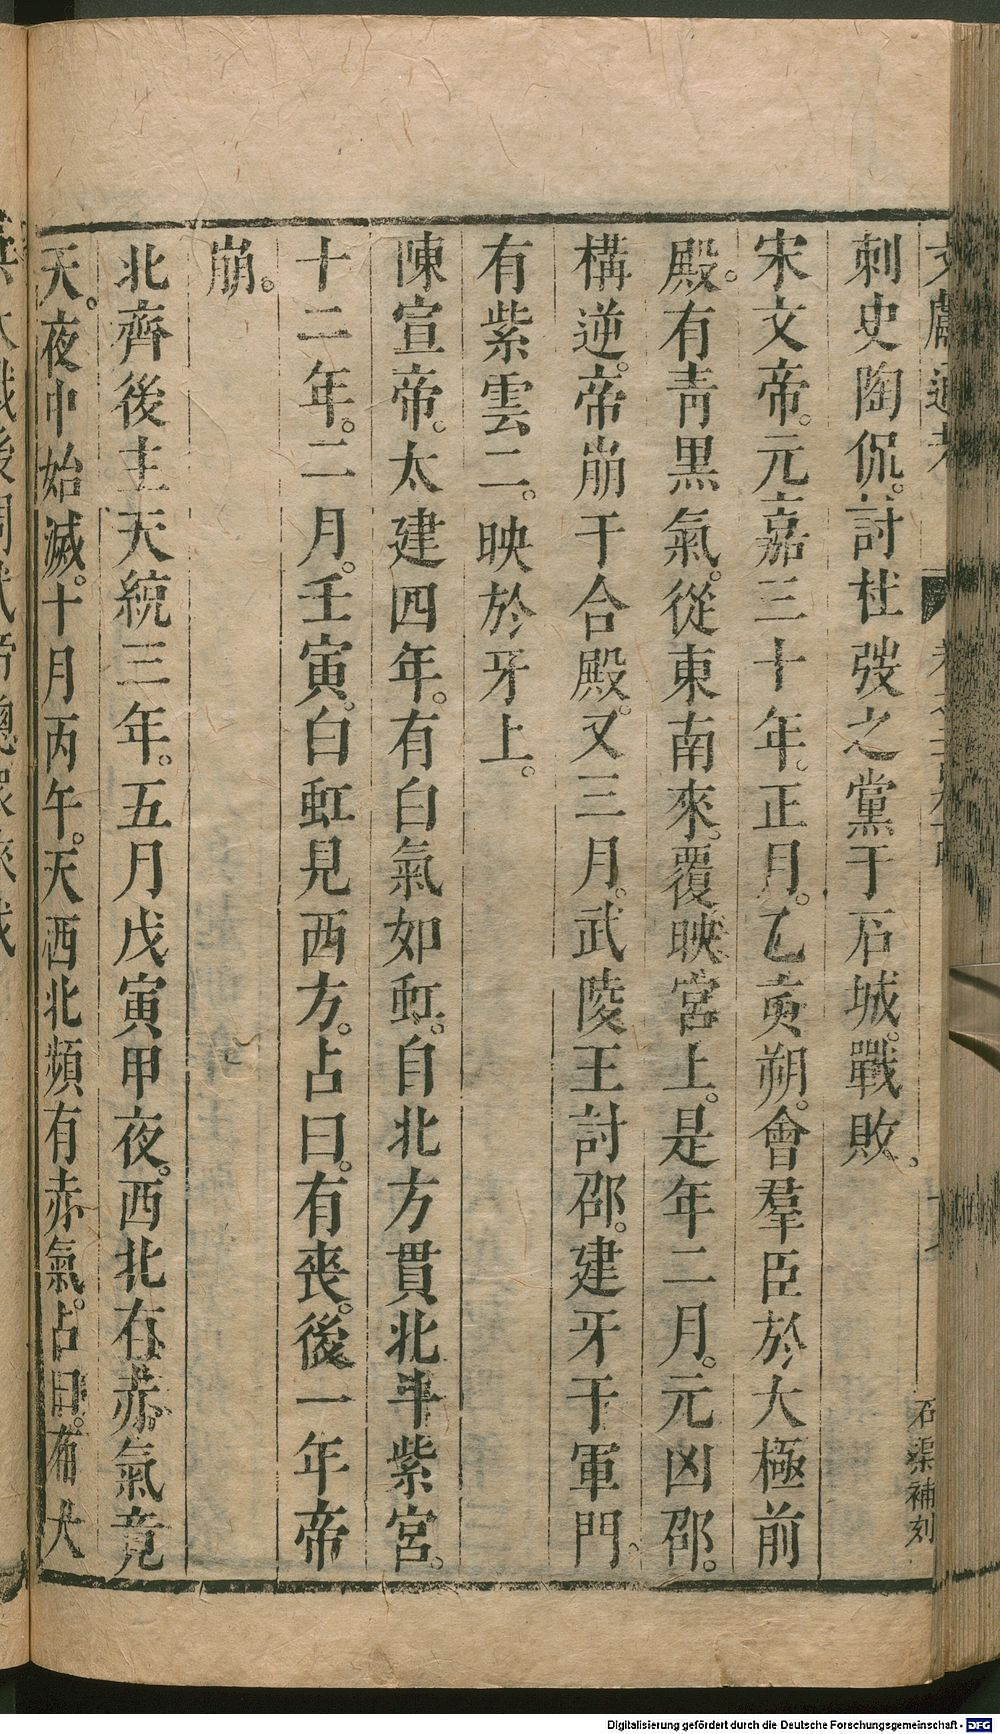 文獻通考
石渠補刻
刺史陶侃。討杜弢之黨于石城。戰敗。
宋文帝。元嘉三十年。正月。乙亥朔。會羣臣於大極前
殿。有靑黑氣。從東南來。覆映宮上。是年二月。元凶邵。
構逆。帝崩于合殿。又三月。武陵王討邵。建牙于軍門。
有紫雲二。映於牙上。
陳宣帝。太建四年。有白氣如虹。自北方貫北斗紫宮。
十二年。二月。壬寅。白虹見西方。占曰。有喪。後一年帝
崩。
北齊後主天統三年。五月戊寅甲夜。西北有赤氣竟
天。夜中始滅。十月丙午。天西北頻有赤氣。占曰。有大
Digitalisierung gefördert durch die Deutsche Forschungsgemeinschaft - DFG